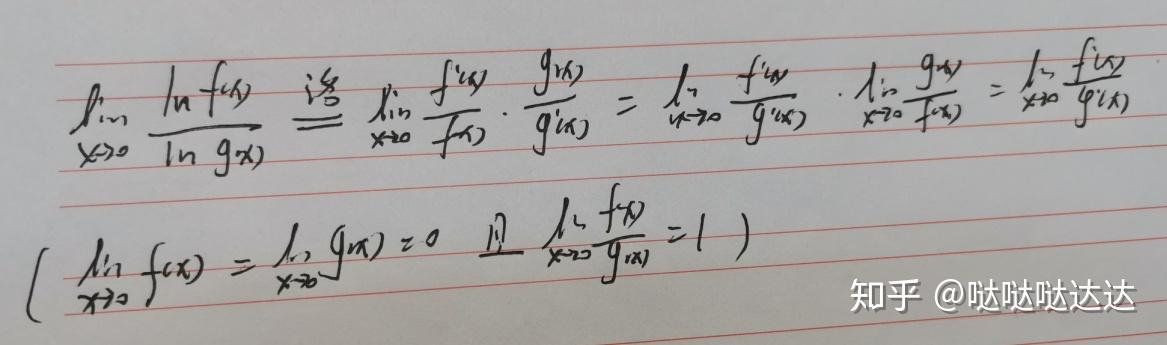 lim x→0 ln f(x) / ln g(x) 洛= lim x→0 f'(x)/f(x) · g(x)/g'(x) = lim x→0 f'(x)/g'(x) · lim x→0 g(x)/f(x) = lim x→0 f'(x)/g'(x)
( lim x→0 f(x) = lim x→0 g(x) = 0 且 lim x→0 f(x)/g(x) = 1 )
知乎 @哒哒哒达达